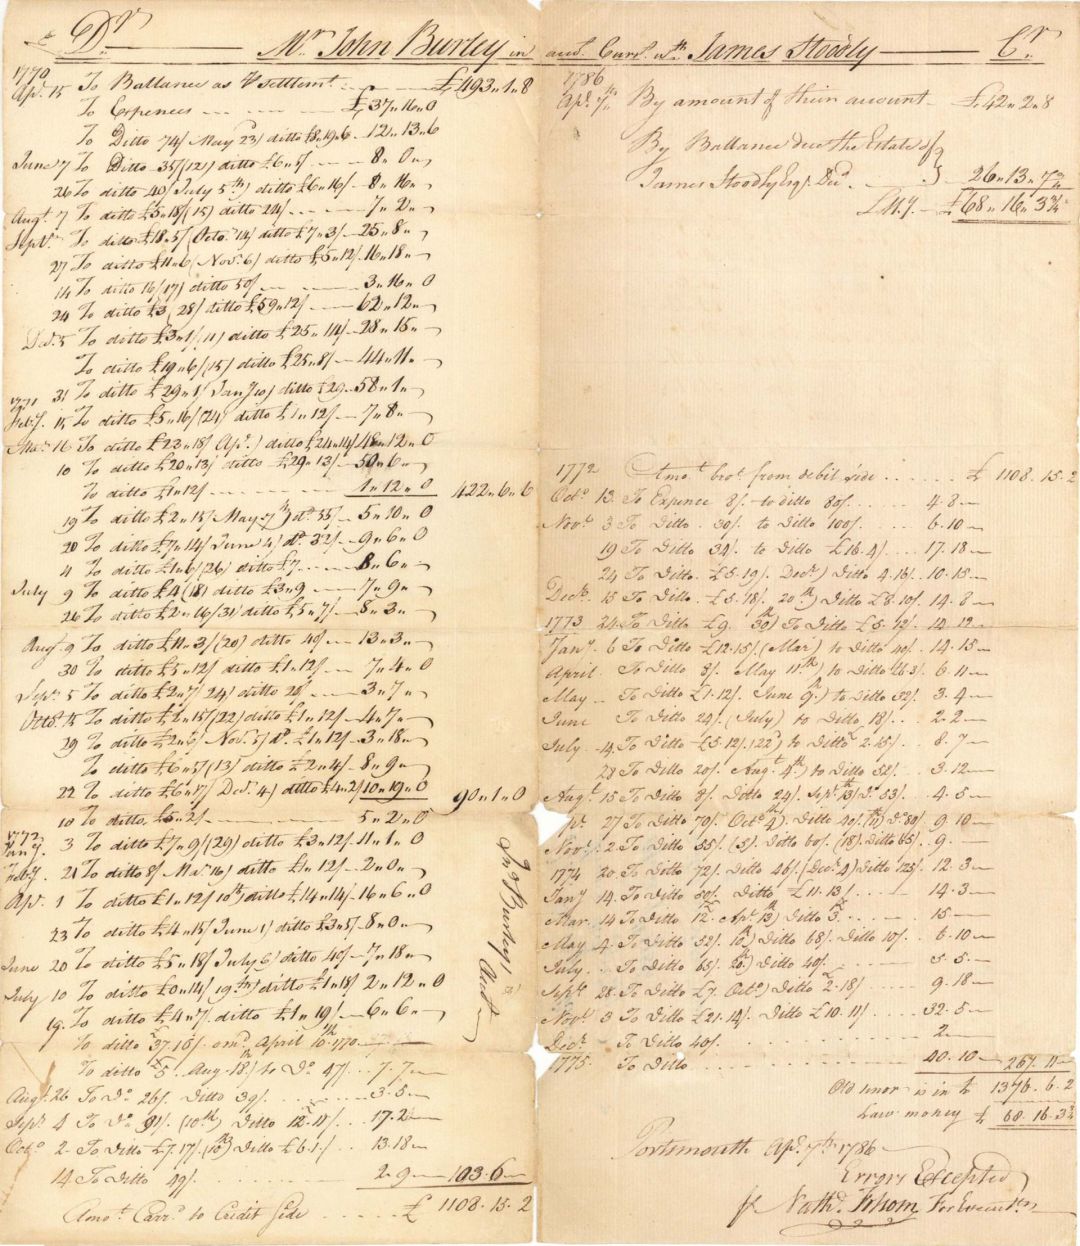 Dr Mr John Burley in acct Currt wth James Stoodly Cr
1770
Apr. 15 To Ballance as settlemt £493"1"8
To Expences £37"16"0
To Ditto 74/ May 23/ ditto £8"19"6 12"13"6
June 7 To Ditto 35/(12) ditto £6"5/ 8"0"
26 To ditto 40/ July 5th) ditto £6"16/ 8"16"
Augt 7 To ditto £5"18/(15) ditto 24/ 7"2"
Septr To ditto £18"5/ (Octo. 14) ditto £7"3/ 25"8"
27 To ditto £11"6 (Novr. 6) ditto £5"12/ 16"18"
14 To ditto 16/(17) ditto 50/ 3"16"0
24 To ditto £3 (28) ditto £59"12/ 62"12"
Decr. 5 To ditto £3"1/(11) ditto £25"14/ 28"15"
To ditto £19"6/(15) ditto £25"8/ 44"11"
31 To ditto £29"1/ Jany 10) ditto £29 58"1"
1771
Feby. 15 To ditto £5"16/(24) ditto £1"12/ 7"8"
Mar. 16 To ditto £23"18/ Apr.) ditto £24"14/ 48"12"0
10 To ditto £20"13/ ditto £29"13/ 50"6"
To ditto £1"12/ 1"12"0 422"6"6
19 To ditto £2"15/ May 7th) do. 55/ 5"10"0
20 To ditto £7"14/ June 4) do. 32/ 9"6"0
4 To ditto £1"6/(26) ditto £7 8"6"
July 9 To ditto £4 (18) ditto £3"9 7"9"
26 To ditto £2"16/31) ditto £5"7/ 8"3"
Augt 9 To ditto £11"3/(20) ditto 40/ 13"3"
30 To ditto £5"12/ ditto £1"12/ 7"4"0
Septr 5 To ditto £2"7/ 24) ditto 20/ 3"7"
Octo 15 To ditto £2"15/(22) ditto £1"12/ 4"7"
29 To ditto £2"6/ Novr. 5/ do. £1"12/ 3"18"
To ditto £6"5/(13) ditto £2"4/ 8"9"
22 To ditto £6"17/ Decr. 4) ditto £4"2/ 10"19"0 90"1"0
10 To ditto £5"2/ 5"2"0
1772
Jany. 3 To ditto £7"9/(29) ditto £3"12/ 11"1"0
Feby. 21 To ditto 8/ Mar 16) ditto £1"12/ 2"0"
Apr. 1 To ditto £1"12/ 10th) ditto £14"14/ 16"6"0
23 To ditto £4"15/ June 1) ditto £3"5/ 8"0"
June 20 To ditto £5"18/ July 6) ditto 40/ 7"18"
July 10 To ditto £0"14/ 19th) ditto £1"18/ 2"12"0
19. To ditto £4"7/ ditto £1"19/ 6"6"
To ditto 37.15/ omd. April 10th 1770
To ditto £5. Aug 18th) to Do 47/ 7.7
Augt. 26 To Do 26/. Ditto 39/. 3.5
Septr. 4 To Do 91/. (10th) Ditto 12.11/. 17.2
Octo 2. To Ditto £7.17/. (10th) Ditto £6.1/. 13.18
14 To Ditto 49/. 2.9 103.6
Amot. Carrd. to Credit Side £ 1108.15.2
Jno Burley's Acct
1786
Apr. 7th By amount of their account £42"2"8
By Ballance due the Estate of
James Stoodly Esqr. Decd. 26"13"7¾
L.My. £68"16"3¾
1772 Amot. brot. from debit side £ 1108.15.2
Octo. 13. To Expence 8/. to ditto 80/. 4.8
Novr. 3 To Ditto. 30/. to Ditto 100/. 6.10
19 To Ditto 34/. to Ditto £16.4/. 17.18
24 To Ditto. £5.19/. Decr.) Ditto 4.16/. 10.15
Decr. 15 To Ditto. £5.18/. 20th) Ditto £8.10/. 14.8
1773 24 To Ditto £9. 30th) To Ditto £5.12/. 14.12
Jany. 6 To Ditto £12.15/. (Mar) to Ditto 40/. 14.15
April To Ditto 8/. May 11th.) to Ditto £6.3/. 6.11
May To Ditto £1.12/. June 9th.) to Ditto 32/. 3.4
June To Ditto 24/. (July) to Ditto 18/. 2.2
July 14 To Ditto £5.12/. (22d) to Ditto £2.15/. 8.7
28 To Ditto 20/. Augt. 4th.) to Ditto 52/. 3.12
Augt. 15 To Ditto 8/. Ditto 24/. Septr. 13th) Do 53/. 4.5
27 To Ditto 70/. Octo 4th). Ditto 40/. (11th) Do 80/. 9.10
Novr. 2. To Ditto 55/. (5). Ditto 60/. (18). Ditto 65/. 9.
1774 20. To Ditto 72/. Ditto 46/. (Decr. 4) Ditto 125/. 12.3
Jany 14. To Ditto 50/. Ditto £11.13/. 14.3
Mar. 14 To Ditto £12. Apr. 13th) Ditto £3. 15
May 4. To Ditto 52/. 10th) Ditto 68/. Ditto 10/. 6.10
July. To Ditto 65/. 20th.) Ditto 40/. 5.5
Septr. 28. To Ditto £7. Octo.) Ditto £2.18/. 9.18
Novr. 3 To Ditto £21.14/. Ditto £10.11/. 32.5
Decr. To Ditto 40/. 2
1775. To Ditto 40.10 267.11
Old tenor is in £ 1376.6.2
Law money £ 68.16.3¾
Portsmouth Apr. 7th 1786
Errors Excepted
Nathl. Folsom For Executrn